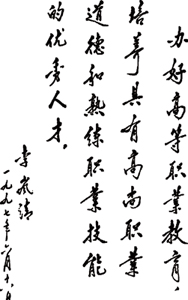 办好高等职业教育，
培养具有高尚职业
道德和熟练职业技能
的优秀人才。
李岚清
一九九七年六月十八日